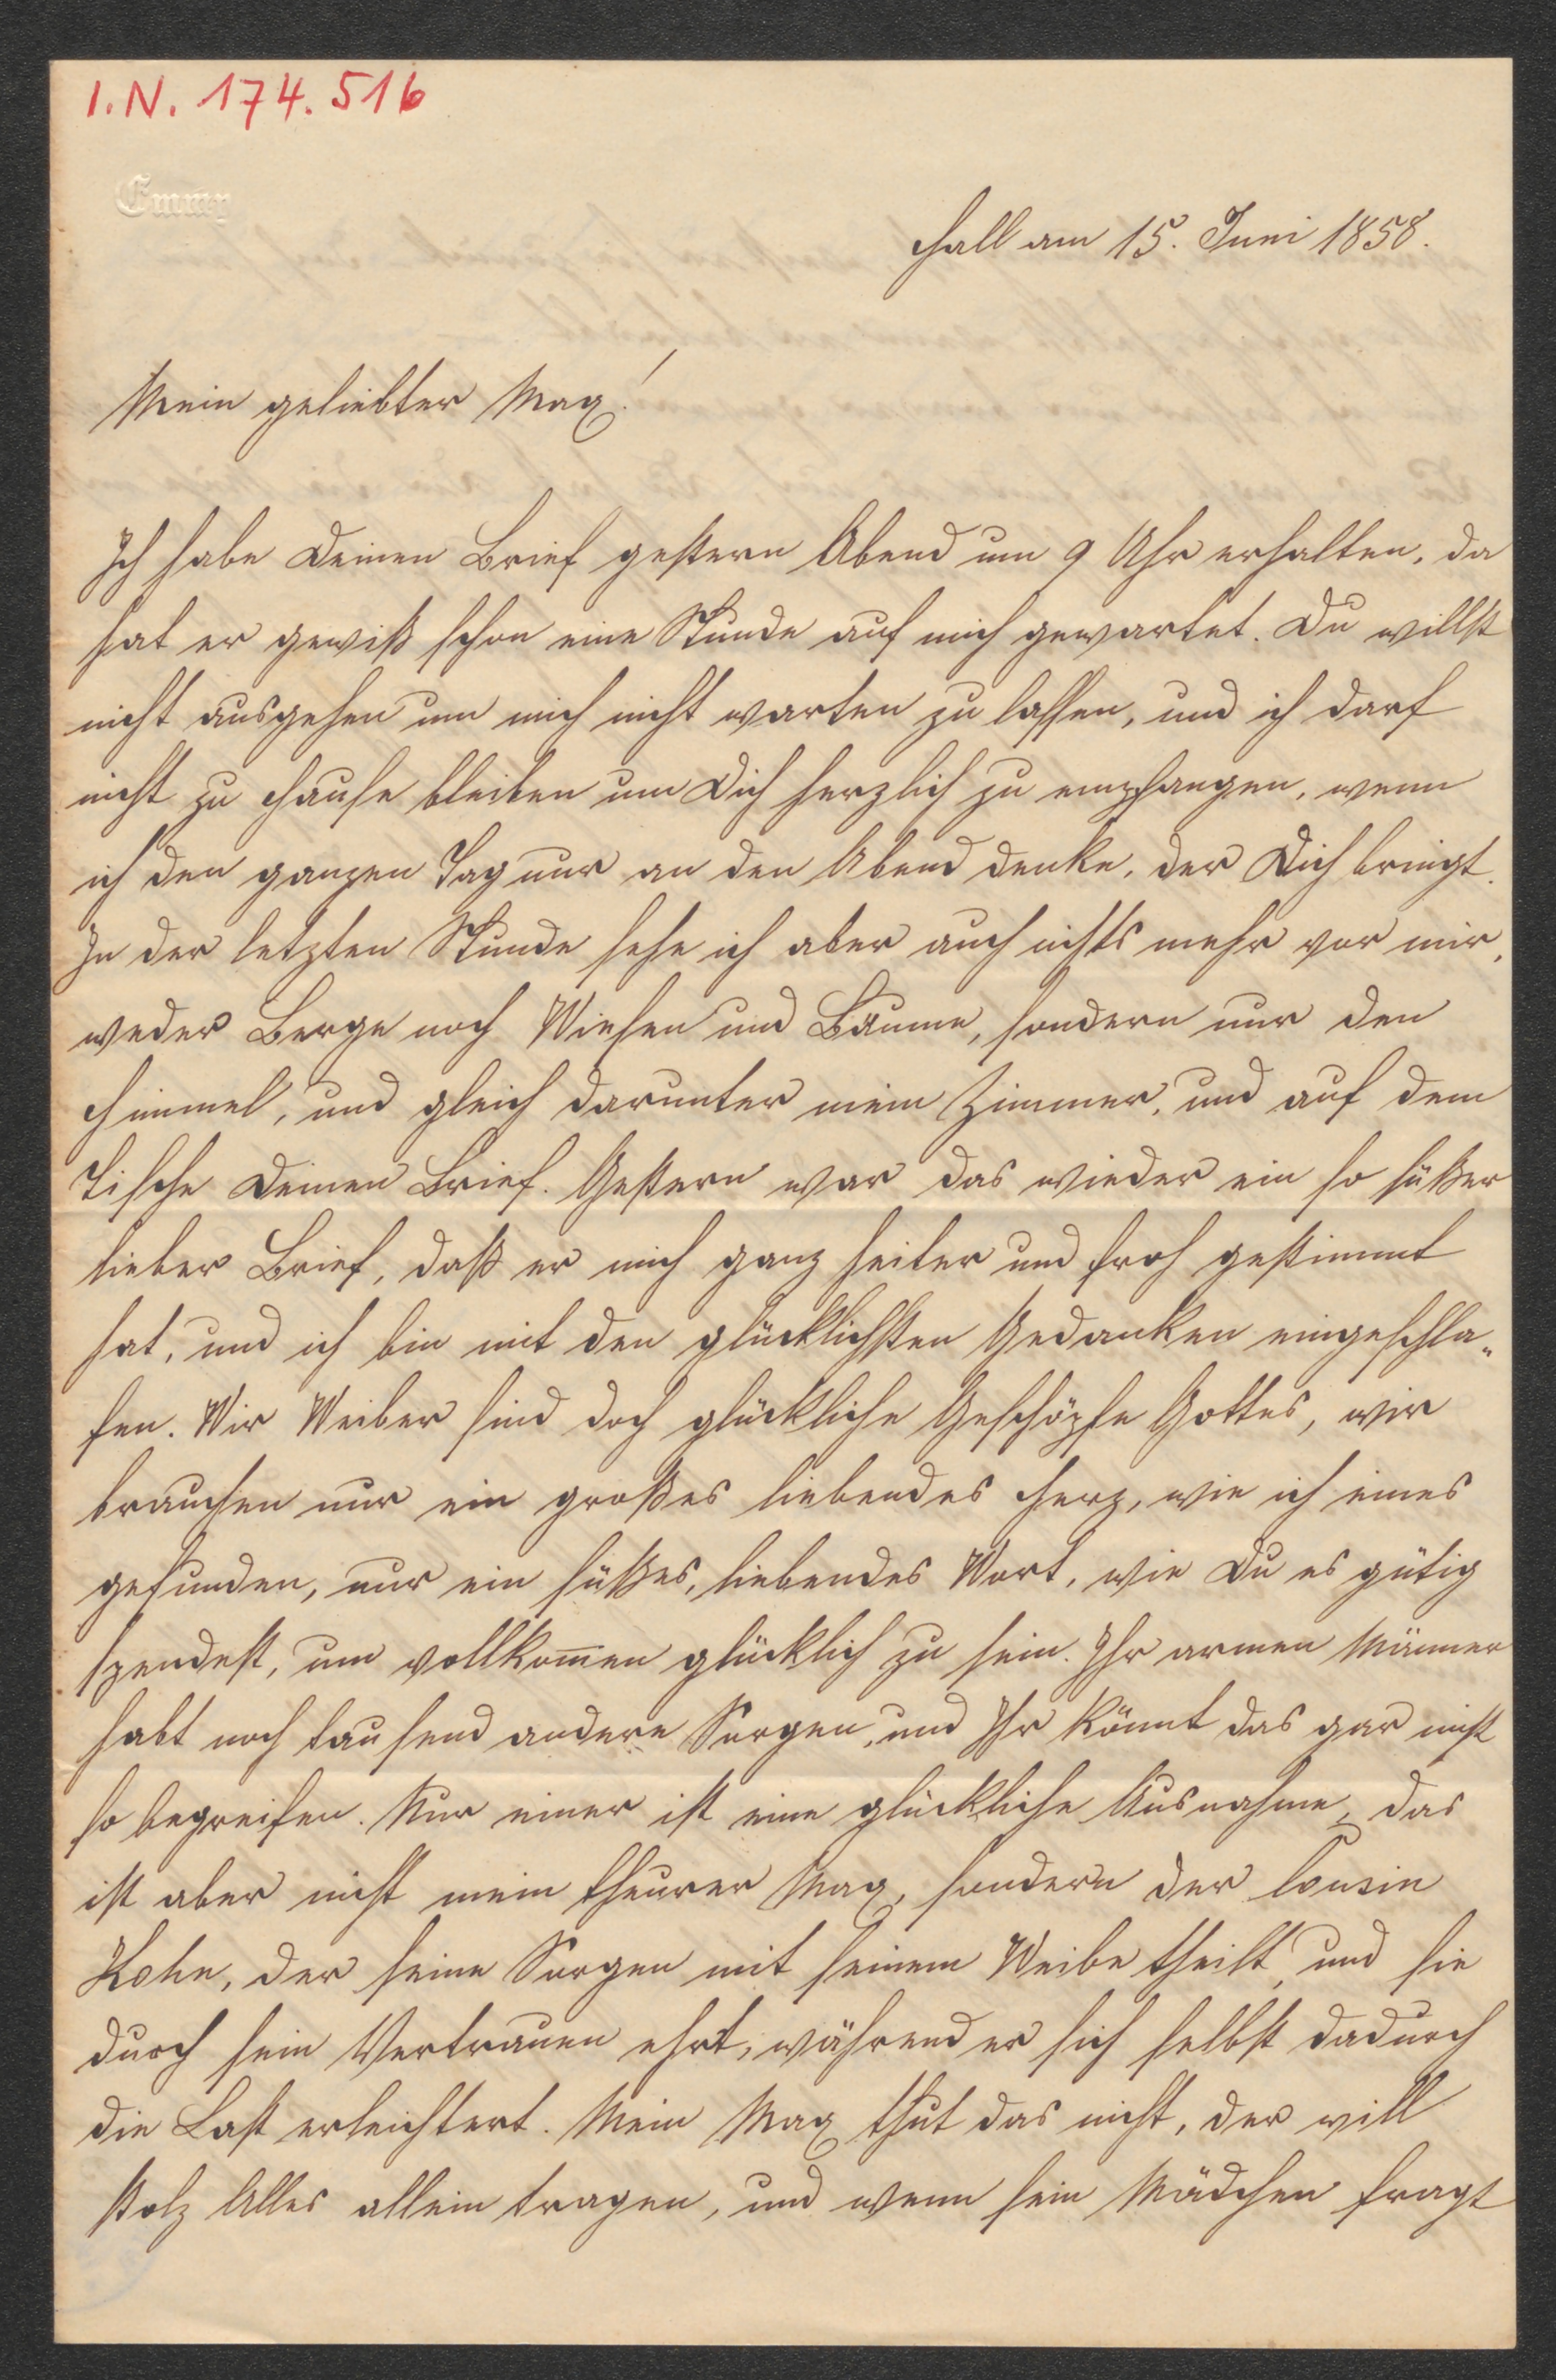 I.N. 174.516
Emmy
Hall am 15. Juni 1858.
Mein geliebter Max!
Ich habe Deinen Brief gestern Abend um 9 Uhr erhalten, da
hat er gewiß schon eine Stunde auf mich gewartet. Du willst
nicht ausgehen um mich nicht warten zu lassen, und ich darf
nicht zu Hause bleiben um Dich herzlich zu empfangen, wenn
ich den ganzen Tag nur an den Abend denke, der Dich bringt.
In der letzten Stunde sehe ich aber auch nichts mehr vor mir,
weder Berge noch Wiesen und Bäume, sondern nur den
Himmel, und gleich darunter mein Zimmer, und auf dem
Tische Deinen Brief. Gestern war das wieder ein so süßer
lieber Brief, daß er mich ganz heiter und froh gestimmt
hat, und ich bin mit den glücklichsten Gedanken eingeschla„
fen. Wir Weiber sind doch glückliche Geschöpfe Gottes, wir
brauchen nur ein großes liebendes Herz, wie ich eines
gefunden, nur ein süßes, liebendes Wort, wie Du es gütig
spendest, um vollkom̅en glücklich zu sein. Ihr armen Männer
habt noch tausend andere Sorgen, und Ihr könnt das gar nicht
so begreifen. Nur einer ist eine glückliche Ausnahme, das
ist aber nicht mein theurer Max, sondern der Cousin
, der seine Sorgen mit seinem Weibe theilt, und sie
durch sein Vertrauen ehrt, während er sich selbst dadurch
die Last erleichtert. Mein Max thut das nicht, der will
stolz Alles allein tragen, und wenn sein Mädchen fragt